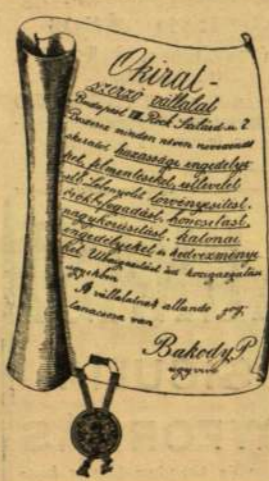 Okirat-
szerző vállalat
Budapest VIII. Rock Szilárd-u. 7
Beszerez minden néven nevezendő
okiratot házassági engedélye-
ket, felmentéseket, útlevelet
stb. Lebonyolít törvényesítést,
örökbefogadást, honosítást,
nagykorúsítást, katonai
engedélyeket és kedvezménye-
ket. Útbaigazítást ád közigazgatási
ügyekben
A vállalatnak állandó jog-
tanácsosa van
Bakody P
ügyvivő